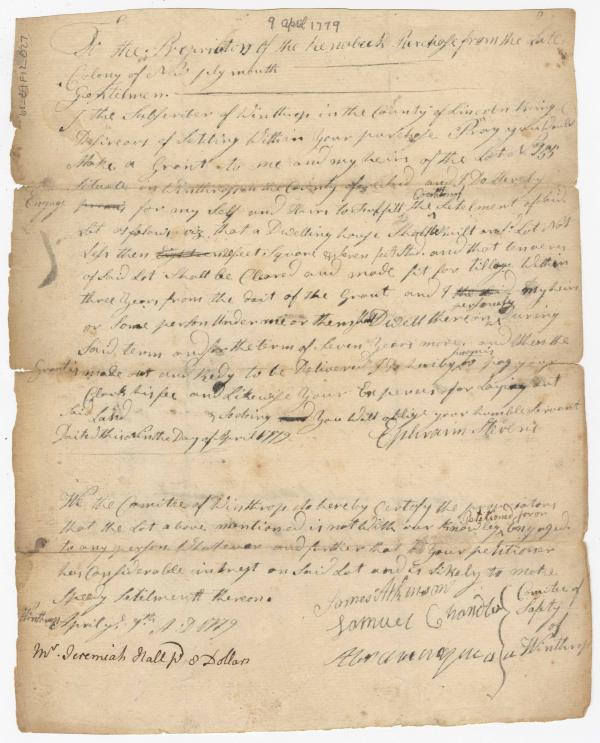 9 april 1779
To the Propriators of the Kenebeck Purchase from the Late
Colony of New plymouth
Gentelmen
I the Subscriber of Winthrop in the County of Lincoln being
Desireous of Setling Within your purchase Pray you Would
Make a Grant to me and my heirs of the Lot No
Situate in Winthrop in the County aforesaid and I Do Hereby
Engage for my Self and Heirs to fulfill the Conditions Setelment of said
Lot as folows viz that a Dwelling house Shall be built on sd Lot Not
Less then feet Square & seven feet Stud and that ten acres
of Said Lot Shall be Cleared and made fit for tillage Within
three Years from the Dait of the Grant and I my heirs
or Some person Under me or them Shall Dwell thereon personely During
Said term and for the term of Seven Years more and When the
Grant is made out and Redy to be Delivered I Do hereby promis to pay your
Clark his fee and Likewise Your Expences for Laying out
Said Land & Soboing You Will oblige your humble Servant
Daited this Ninth Day of April 1779
Ephraim Stevens
We the Comitie of Winthrop do hereby Certify the
that the Lot above mentioned is not With our Knowledg Engaged
to any person Whatever and further that your petitioner
has Considerable intrest on Said Lot and is likely to make
Speedy Setelment thereon
Winthrop April ye 9th A D 1779
James Atkinson
Samuel Chandler
Comitie of
Safty
of
Winthrop
Mr. Jeremiah Hall pd 8 Dollars